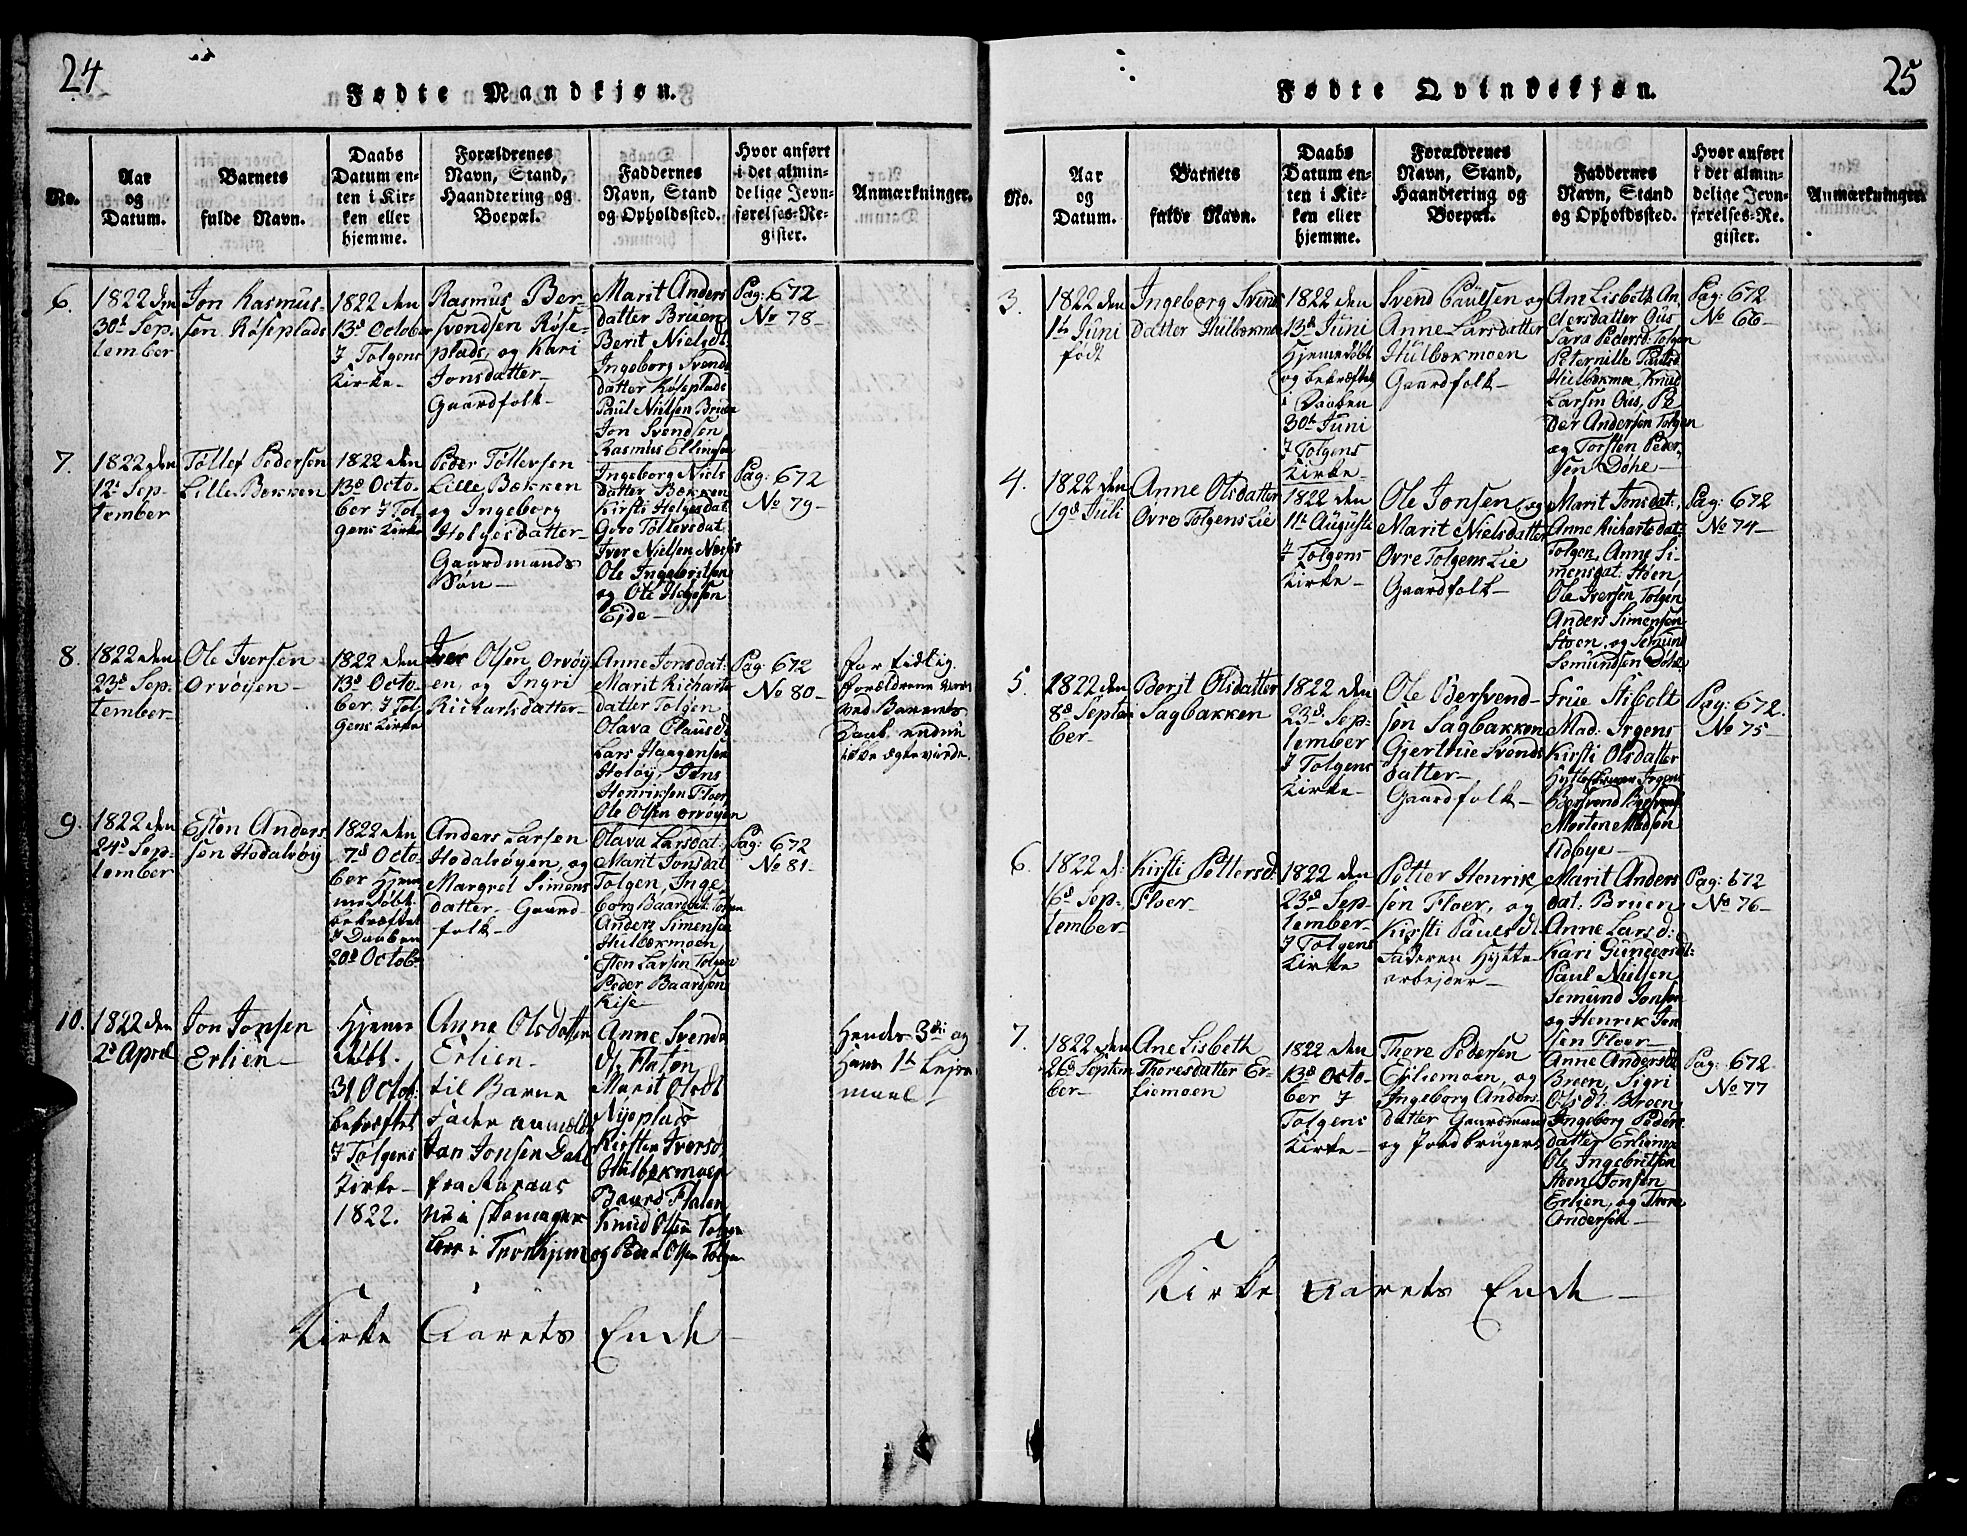 24
Fødte Mandkjøn.
No.
Aar
og
Datum.
Barnets
fulde Navn.
Daabs
Datum en-
ten i Kir-
ken eller
hjemme.
Forældrenes
Navn, Stand,
Haandtering og
Boepæl.
Faddernes
Navn, Stand
og Opholdssted.
Hvor anført
i det almin-
delige Jevn-
førelses-Re-
gister.
Anmærkninger.
6.
1822 den
30d Sep-
tember
Jon Rasmus-
sen Røseplads
1822 den
13d October
I Tolgens
Kirke-
Rasmus Ber-
svendsen Røse-
plads, og Kari
Jonsdatter-
Gaardfolk-
Marit Anders
datter Bruen
Berit Nielsdt
Ingeborg Svends
datter Røseplads
Paul Nielsen Bruen
Jon Svendsen
Rasmus Ellingsen
Pag: 672
No 78-
7.
1822 den
12t Sep-
tember
Tøllef Pedersen
Lille Bækken
1822 den
13d Octo-
ber I Tol-
gens Kirke
Peder Tøllevsen
Lille Bækken
og Ingeborg
Holgesdatter-
Gaardmands
Søn-
Ingeborg Niels
datter Bækken
Kirsti Helgesdat
Guro Tøllevsdat
Iver Nielsen
Ole Ingebritsen
og Ole Helgesen
Eide-
Pag: 672
No 79-
8.
1822 den
23d Sep-
tember
Ole Iversen
Orvøyen-
1822 den
13d Octo-
ber. I Tol-
gens Kirke
Iver Olsen Orvøy-
en, og Ingri
Richartsdatter-
Anne Jonsdat:
Marit Richarts
datter Tolgen
Olava Clausdt
Lars Haagensen
Holøy, Jens
Henriksen Floer
Ole Olsen Orvøyen
Pag: 672
No 80-
For tidlig.
Forældrene vare
ved Barnets
Daab endnu
ikke ægteviede.
9.
1822 den
24d Sep-
tember
Esten Anders
sen Hodalsøy
1822 den
7d Octo-
ber Hjem-
medøbt
bekræftet
I Daaben
20d Octob.
Anders Larsen
Hodalsøyen, og
Margret Simens
datter- Gaard-
folk-
Olava Larsdat
Marit Jonsdat
Tolgen, Inge
borg Baardsdt Tolgen
Anders Simensen
Hulbækmoen,
Esten Larsen Tolgen
Peder Baardsen
Kise-
Pag: 672
No 81-
10.
1822 den
2d April
Jon Jonsen
Erlien-
Hjemme
døbt.
31 Octob:
bekræftet
I Tolgens
Kirke-
1822.
Anne Olsdatter
Erlien-
til Barne
Fader anmeldt
Jon Jonsen Dahl
fra Aaraas
nu i Skomager
Lære i Tronhjem
Anne Svends
dt Flaten
Marit Olsdt
Nyeplads
Kirsten Iversd.
Hulbækmoen
Baard Flaten
Knud Olsen Tolgen
og Peder Olsen Tolgen
Hendes 3die og
Hans 1te Leier-
maal
Kirke Aarets Ende-
25
Fødte Qvindekjøn.
No.
Aar
og
Datum.
Barnets
fulde Navn.
Daabs
Datum en-
ten i Kir-
ken eller
hjemme.
Forældrenes
Navn, Stand,
Haandtering og
Boepæl.
Faddernes
Navn, Stand
og Opholdssted.
Hvor anført
i det almin-
delige Jevn-
førelses-Re-
gister.
Anmærkninger.
3.
1822 den
1te Juni
født
Ingeborg Svends
datter Hulbækmoe
1822 den
13d Juni
Hjemmedøbt
og bekræftet
i Daaben
30te Juni
I Tolgens
Kirke-
Svend Paulsen og
Anne Larsdatter
Hulbækmoen
Gaardfolk-
An Lisbeth An
dersdatter Ous
Sara Pedersd: Tolgen
Peternille Paulsd
Hulbækmoe, Knud
Larsen Ous, Pe
der Andersen Tolgen
og Torsten Peder-
sen Døhe-
Pag: 672
No 66-
4.
1822 den
19d Juli
Anne Olsdatter
Øvre Tolgens Lie
1822 den
11te Auguste
I Tolgens
Kirke-
Ole Jonsen, og
Marit Nielsdatter
Øvre Tolgens Lie
Gaardfolk-
Marit Jonsdat:
Anne Richartsdat:
Tolgen, Anne Si-
mensdat: Støen,
Ole Iversen Tolgen
Anders Simensen
Støen, og Semund
Semundsen Døhe
Pag: 672
No 74-
5.
1822 den
8d Septem
ber-
Berit Olsdatter
Sagbakken
1822 den
23d Sep-
tember
I Tolgens
Kirke-
Ole Bersvend-
sen Sagbakken
Gjertrue Svends
datter-
Gaardfolk-
Frue Stibolt
Mad: Irgens
Kirsti Olsdatter
Morten Madsen
Udbye-
Pag: 672.
No 75-
6.
1822 d:
16d Sep-
tember-
Kirsti Pettersdt
Floer-
1822 den
23d Sep-
tember-
I Tolgens
Kirke
Petter Henrik-
sen Floer, og
Kirsti Paulsdt
Faderen Hytte-
arbejder-
Marit Anders
dat: Bruen
Anne Larsd:
Kari Gundersdt:
Paul Nielsen
Semund Jonsen
og Henrik Jon-
sen Floer-
Pag: 672
No 76-
7.
1822 den
26d Septem
ber-
Ane Lisbeth
Thoresdatter Er-
liemoen
1822 den
13d Octo-
ber I
Tolgens
Kirke-
Thore Pedersen
Erliemoen, og
Ingeborg Anders
datter Gaardmand
og Jordbruger
Anne Andersdt
Bruen, Sigri
Olsdt: Bruen
Ingeborg Peders
datter Erliemoe
Ole Ingebritsen
Steen Jonsen
Erlien, og Thore
Andersen-
Pag: 672
No 77
Kirke Aarets Ende-